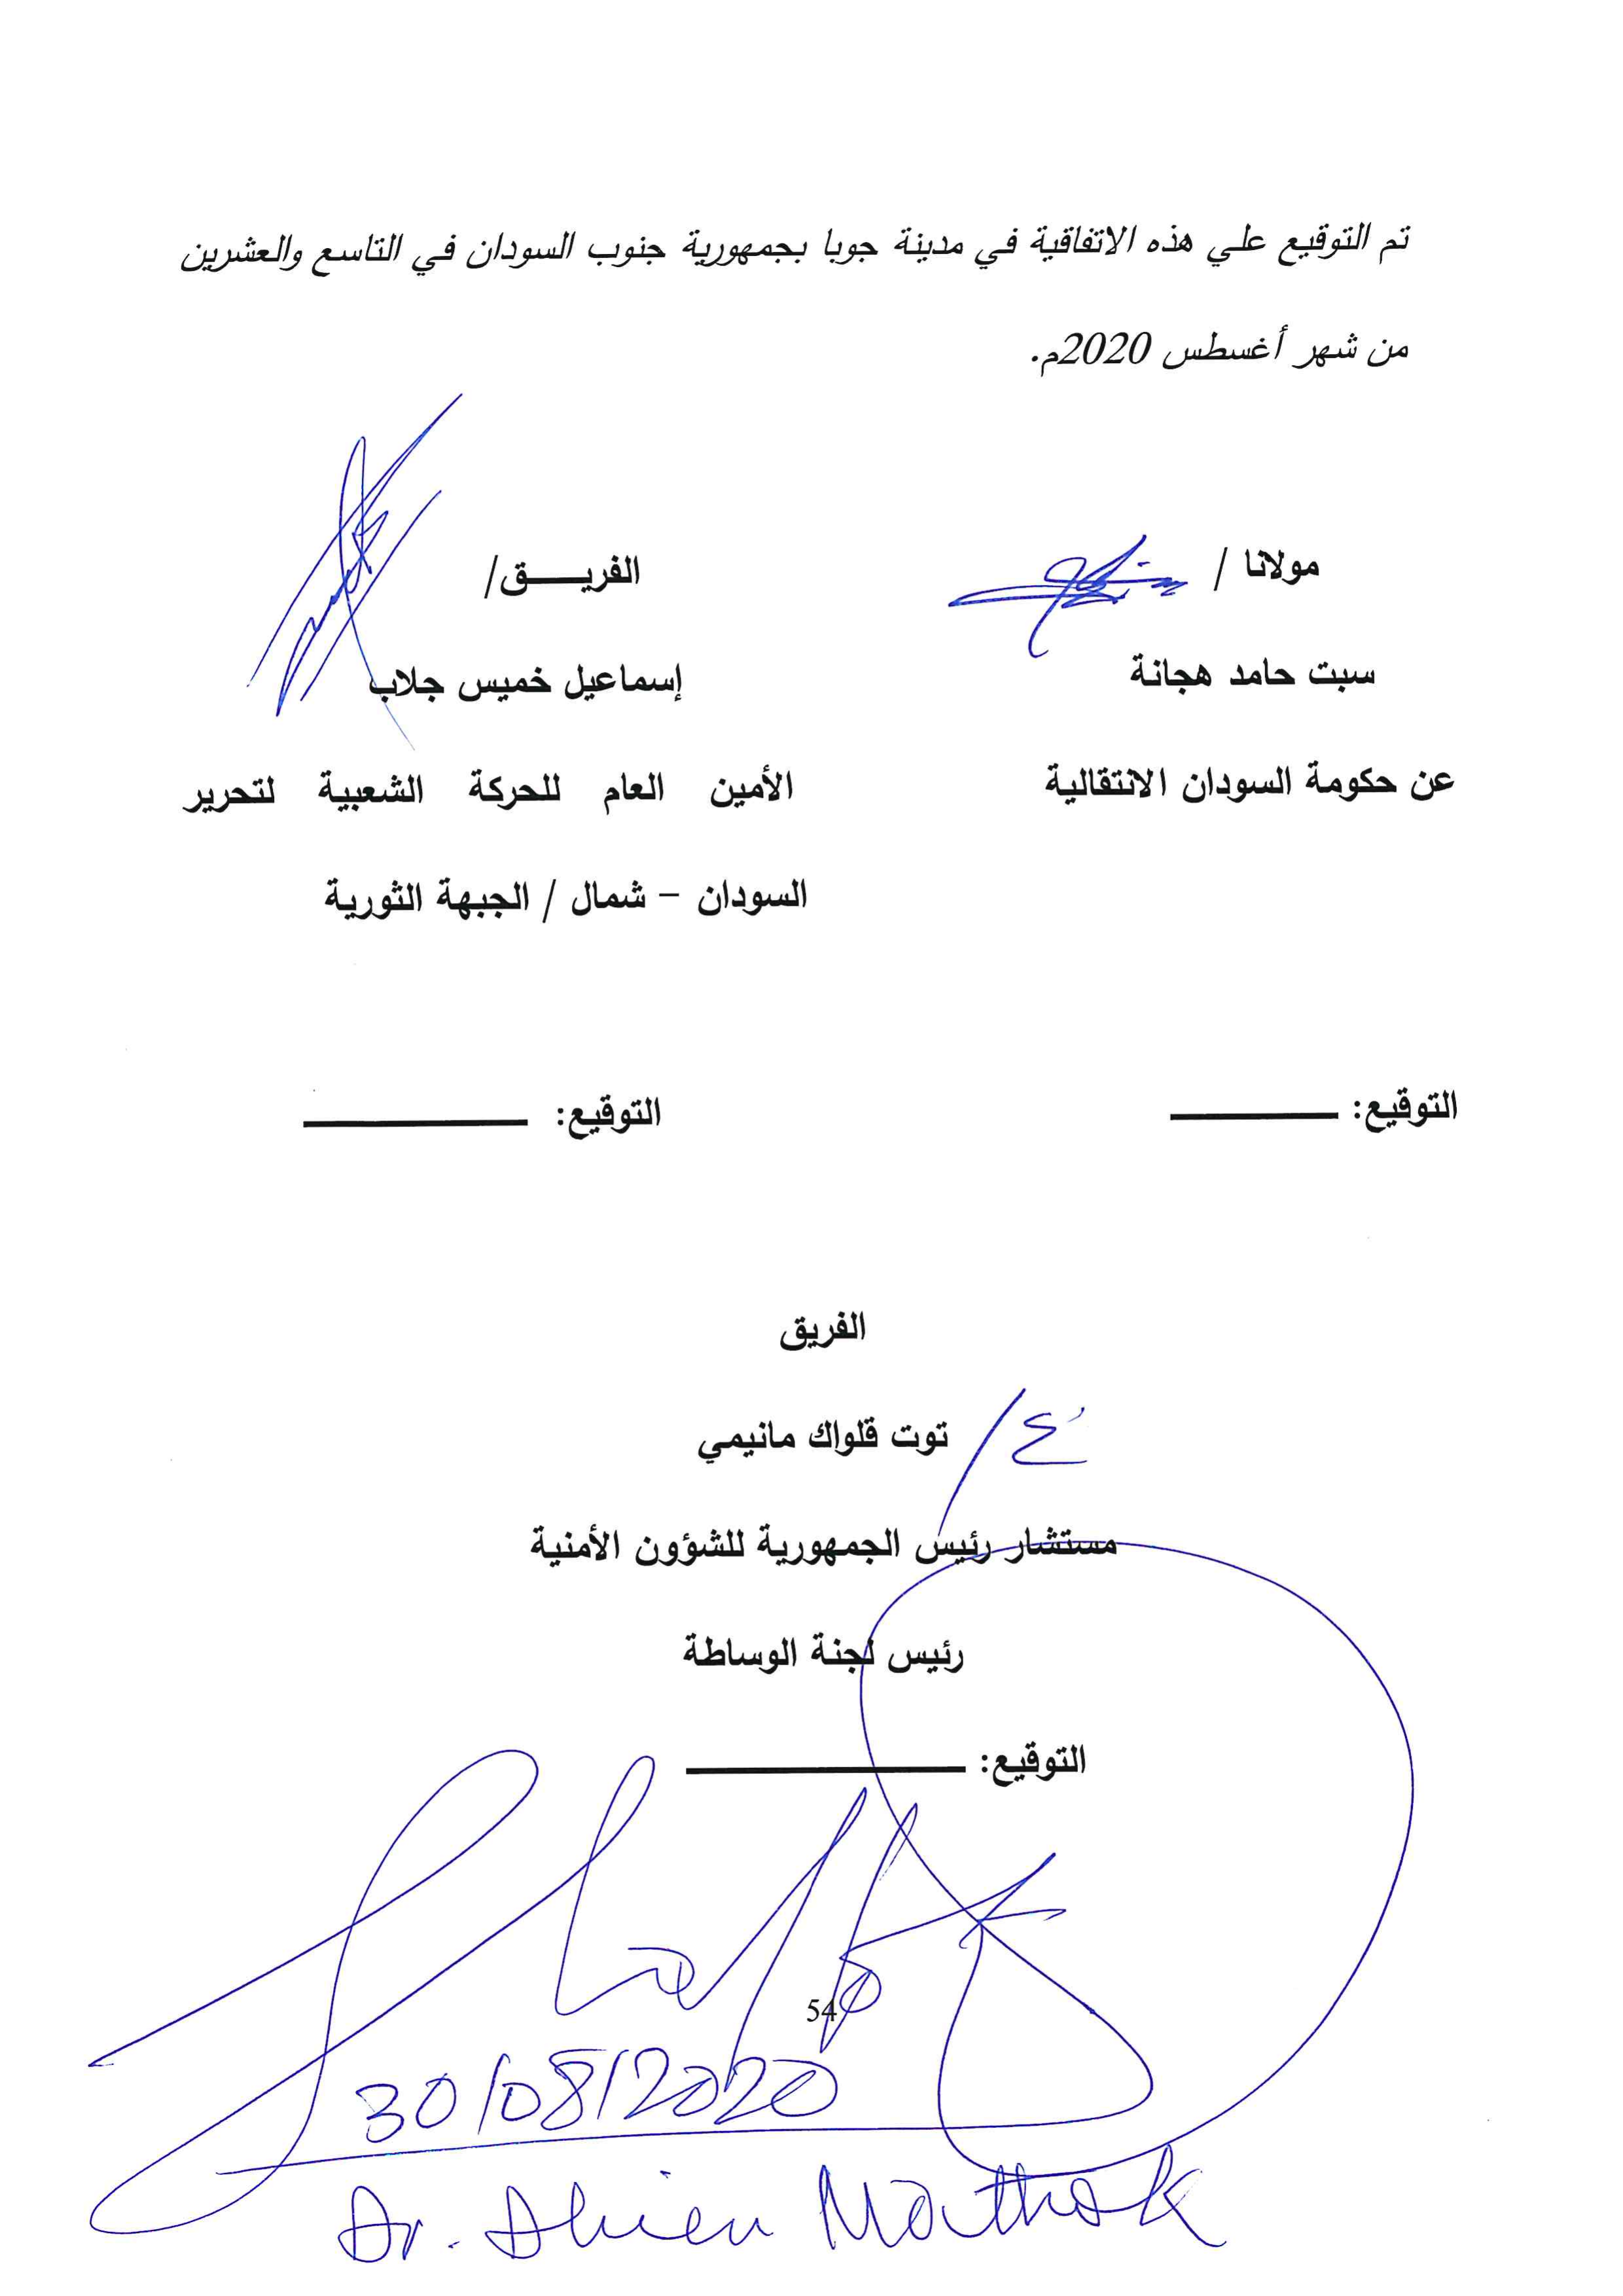 تم التوقيع علي هذه الاتفاقية في مدينة جوبا بجمهورية جنوب السودان في التاسع والعشرين
من شهر أغسطس 2020م.
مولانا /
سبت حامد هجانة
عن حكومة السودان الانتقالية
الفريـــــق/
إسماعيل خميس جلاب
الأمين العام للحركة الشعبية لتحرير
السودان – شمال / الجبهة الثورية
التوقيع:
التوقيع:
الفريق
ع/ توت قلواك مانيمي
مستشار رئيس الجمهورية للشؤون الأمنية
رئيس لجنة الوساطة
التوقيع:
54
30/08/2020
Dr. Dhieu Mathok